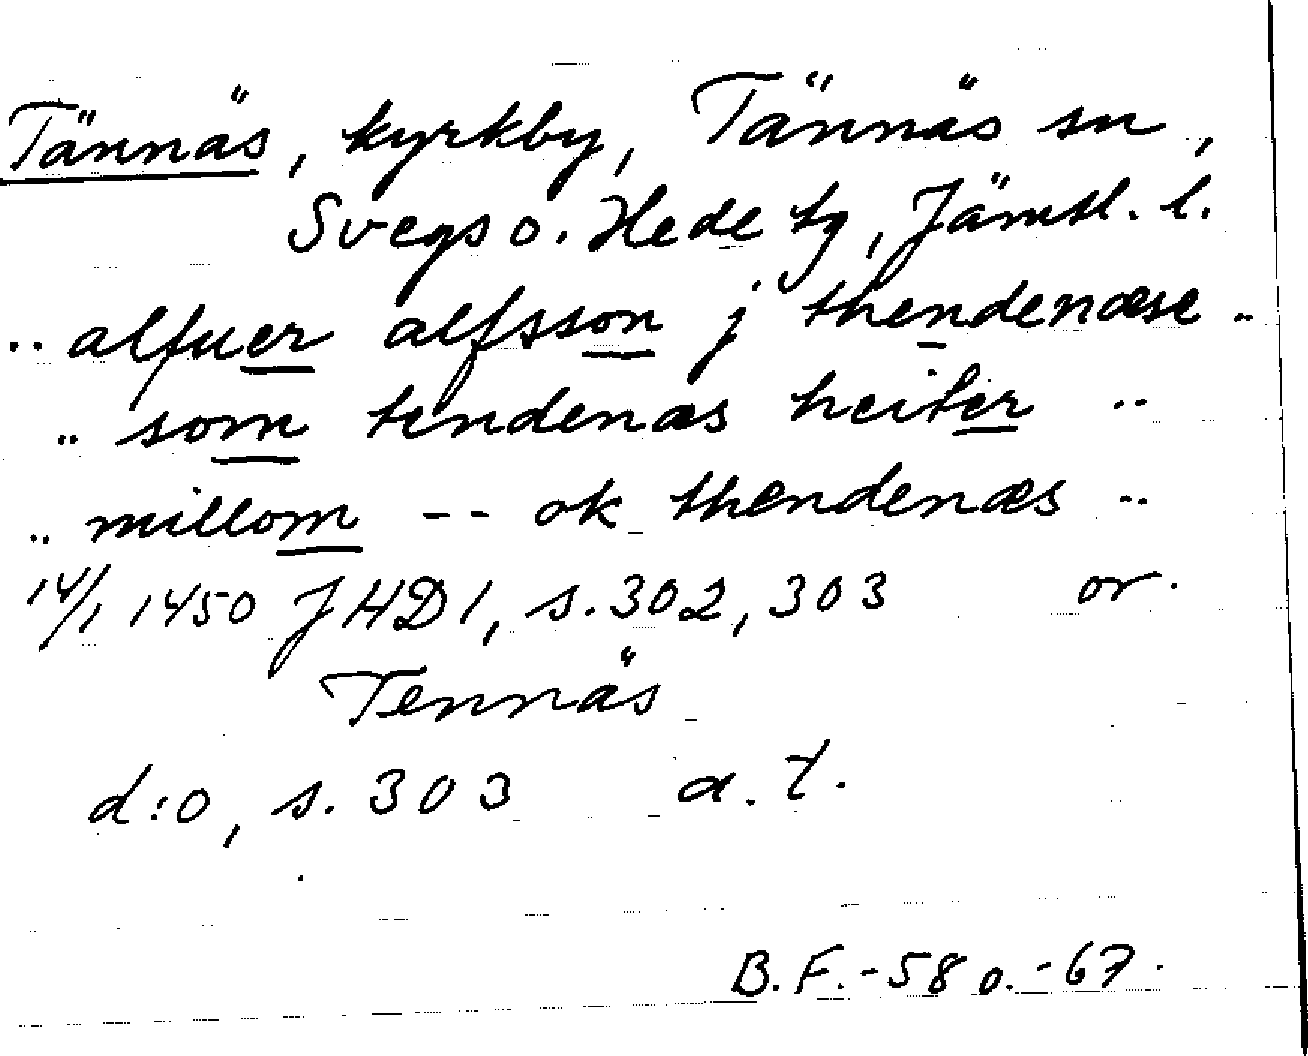 Tännäs, kyrkby, Tännäs sn,
Svegs o. Hede tg, Jämtl. l.
.. alfuer alfsson j thendenæse ..
.. som tendenæs heiter ..
.. millom -- ok thendenæs ..
14/1 1450 JHD1, s. 302, 303 or.
Tennäs
d:o, s. 303 a.t.
B.F.-58 o.-67.